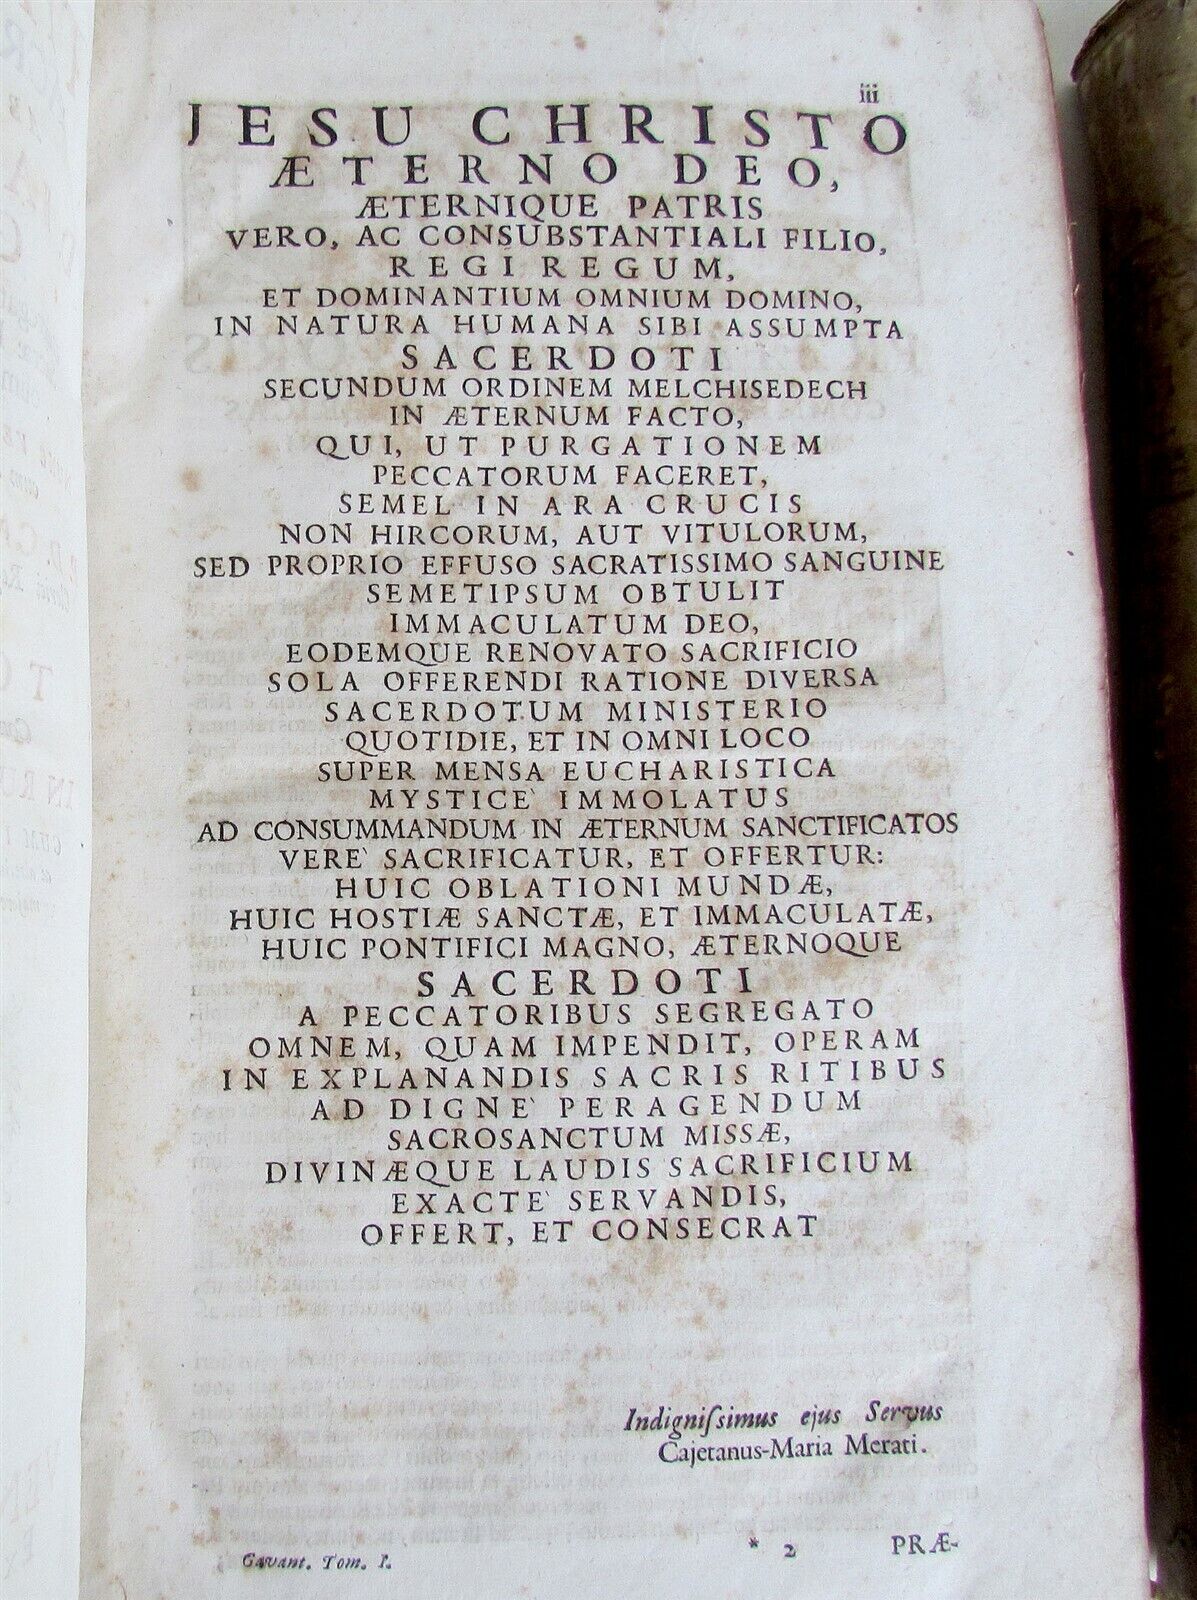 iii
JESU CHRISTO
ÆTERNO DEO,
ÆTERNIQUE PATRIS
VERO, AC CONSUBSTANTIALI FILIO,
REGI REGUM,
ET DOMINANTIUM OMNIUM DOMINO,
IN NATURA HUMANA SIBI ASSUMPTA
SACERDOTI
SECUNDUM ORDINEM MELCHISEDECH
IN ÆTERNUM FACTO,
QUI, UT PURGATIONEM
PECCATORUM FACERET,
SEMEL IN ARA CRUCIS
NON HIRCORUM, AUT VITULORUM,
SED PROPRIO EFFUSO SACRATISSIMO SANGUINE
SEMETIPSUM OBTULIT
IMMACULATUM DEO,
EODEMQUE RENOVATO SACRIFICIO
SOLA OFFERENDI RATIONE DIVERSA
SACERDOTUM MINISTERIO
QUOTIDIE, ET IN OMNI LOCO
SUPER MENSA EUCHARISTICA
MYSTICE` IMMOLATUS
AD CONSUMMANDUM IN ÆTERNUM SANCTIFICATOS
VERE` SACRIFICATUR, ET OFFERTUR:
HUIC OBLATIONI MUNDÆ,
HUIC HOSTIÆ SANCTÆ, ET IMMACULATÆ,
HUIC PONTIFICI MAGNO, ÆTERNOQUE
SACERDOTI
A PECCATORIBUS SEGREGATO
OMNEM, QUAM IMPENDIT, OPERAM
IN EXPLANANDIS SACRIS RITIBUS
AD DIGNE` PERAGENDUM
SACROSANCTUM MISSÆ,
DIVINÆQUE LAUDIS SACRIFICIUM
EXACTE` SERVANDIS,
OFFERT, ET CONSECRAT
Indigniſsimus ejus Servus
Cajetanus-Maria Merati.
Gavant. Tom. I. * 2 PRÆ-